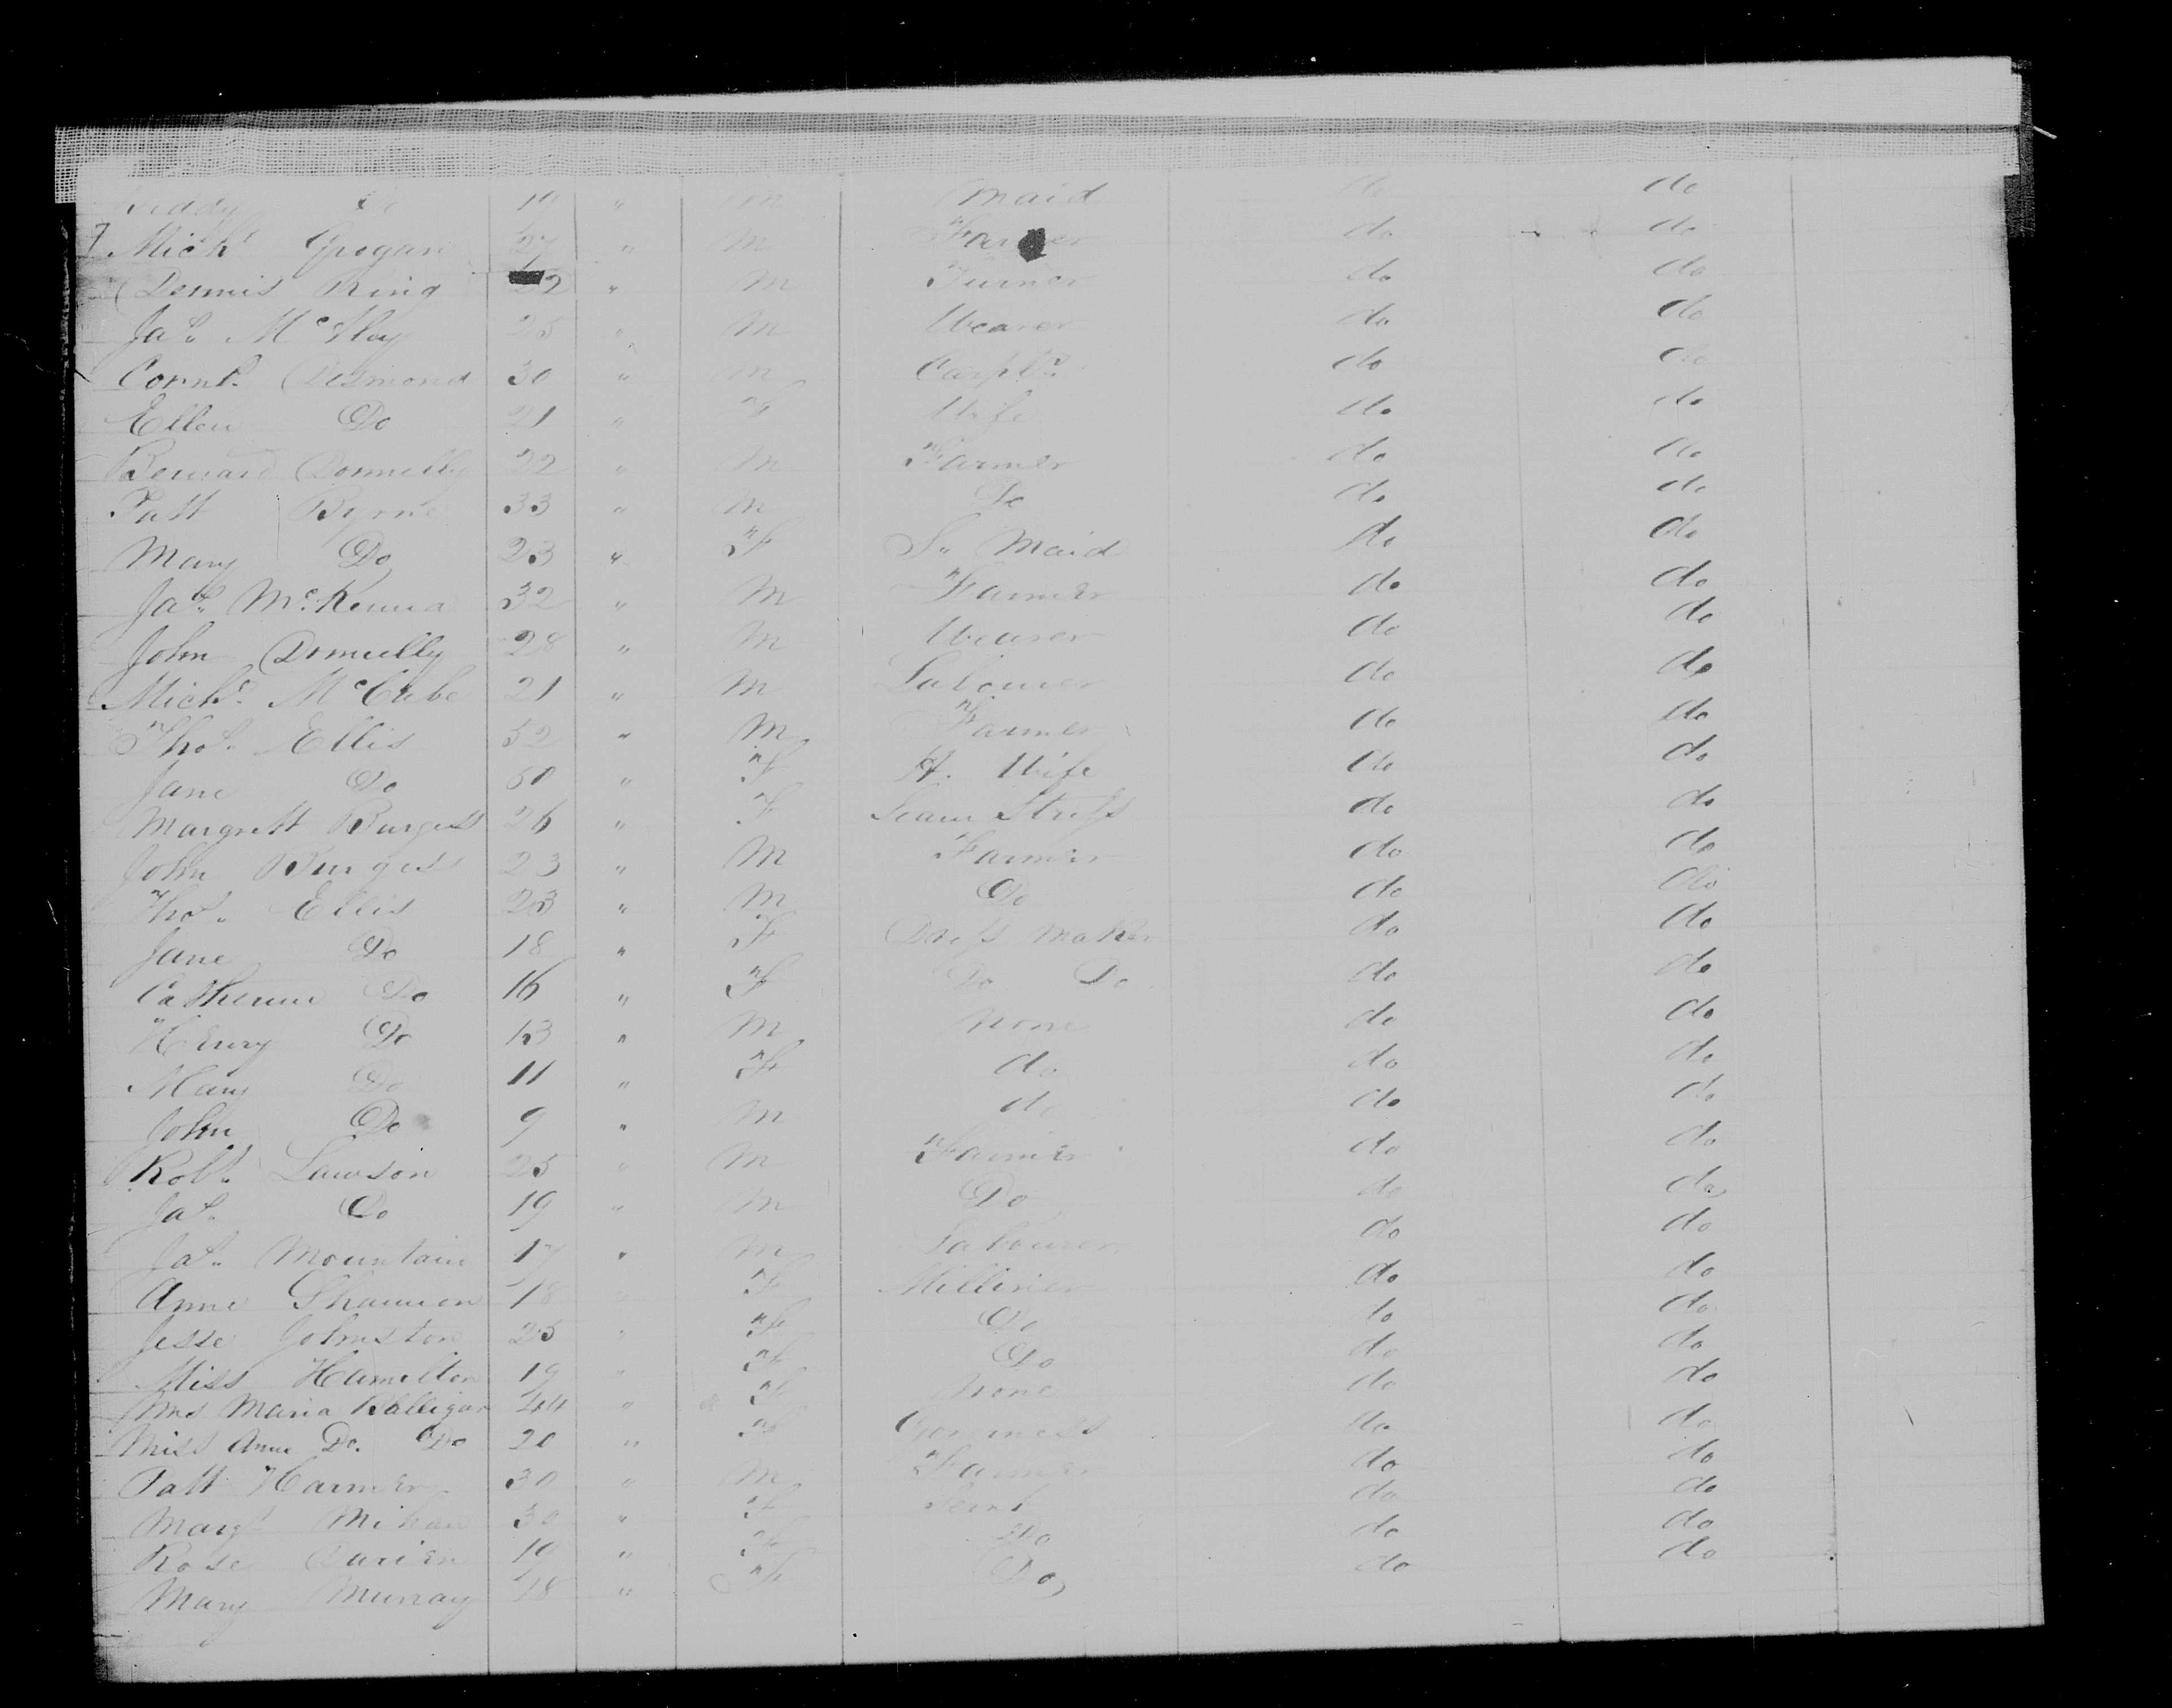 Do 19 " M Maid do do
Mich.l Grogan 27 " M Farmer do do
Dennis King 22 " M Turner do do
Ja.s Mc " M Weaver do do
Corn.s Desmond 30 " M Carpt.r do do
Ellen Do 21 " F Wife do do
Bernard Donnelly 22 " M Farmer do do
Patt Byrne 33 " M Do do do
Mary Do 23 " F S. Maid do do
Ja.s McKenna 32 " M Farmer do do
John Donnelly 28 " M Weaver do do
Mich.l McCabe 21 " M Labourer do do
Tho.s Ellis 52 " M Farmer do do
Jane Do 50 " F H. Wife do do
Margrett Burgess 26 " F Seam Stress do do
John Burgess 23 " M Farmer do do
Tho.s Ellis 23 " M Do do do
Jane Do 18 " F Dress Maker do do
Catherine Do 16 " F Do Do do do
Henry Do 13 " M None do do
Mary Do 11 " F do do do
John Do 9 " M do do do
Rob.t Lawson 25 " M Farmer do do
Ja.s Do 19 " M Do do do
Ja.s Mountain 17 " M Labourer do do
Anne Shannon 18 " F Milliner do do
Jesse Johnston 25 " F Do do do
Miss Hamilton 19 " F Do do do
Mrs Maria Halligan 44 " F None do do
Miss Anne Do. Do 20 " F Governess do do
Patt Harmer 30 " M Farmer do do
Marg.t Mihan 30 " F Serv.t do do
Rose 19 " F Do do do
Mary Murray 18 " F Do do do